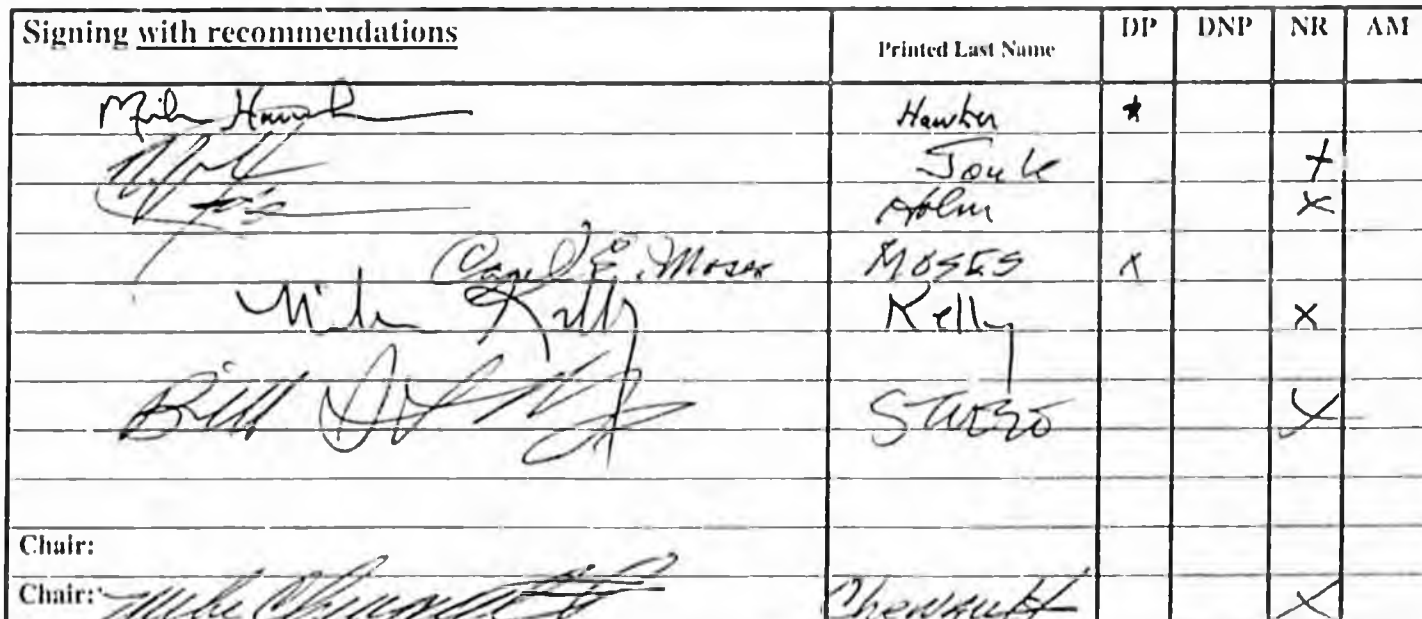 Signing with recommendations Printed Last Name DP DNP NR AM
Mike Hawker Hawker x
Joule x
Holm x
Carl E. Moses MOSES x
Mike Kelly Kelly x
Bill Stoltze x
Chair:
Chair: Mike Chenault Chenault x